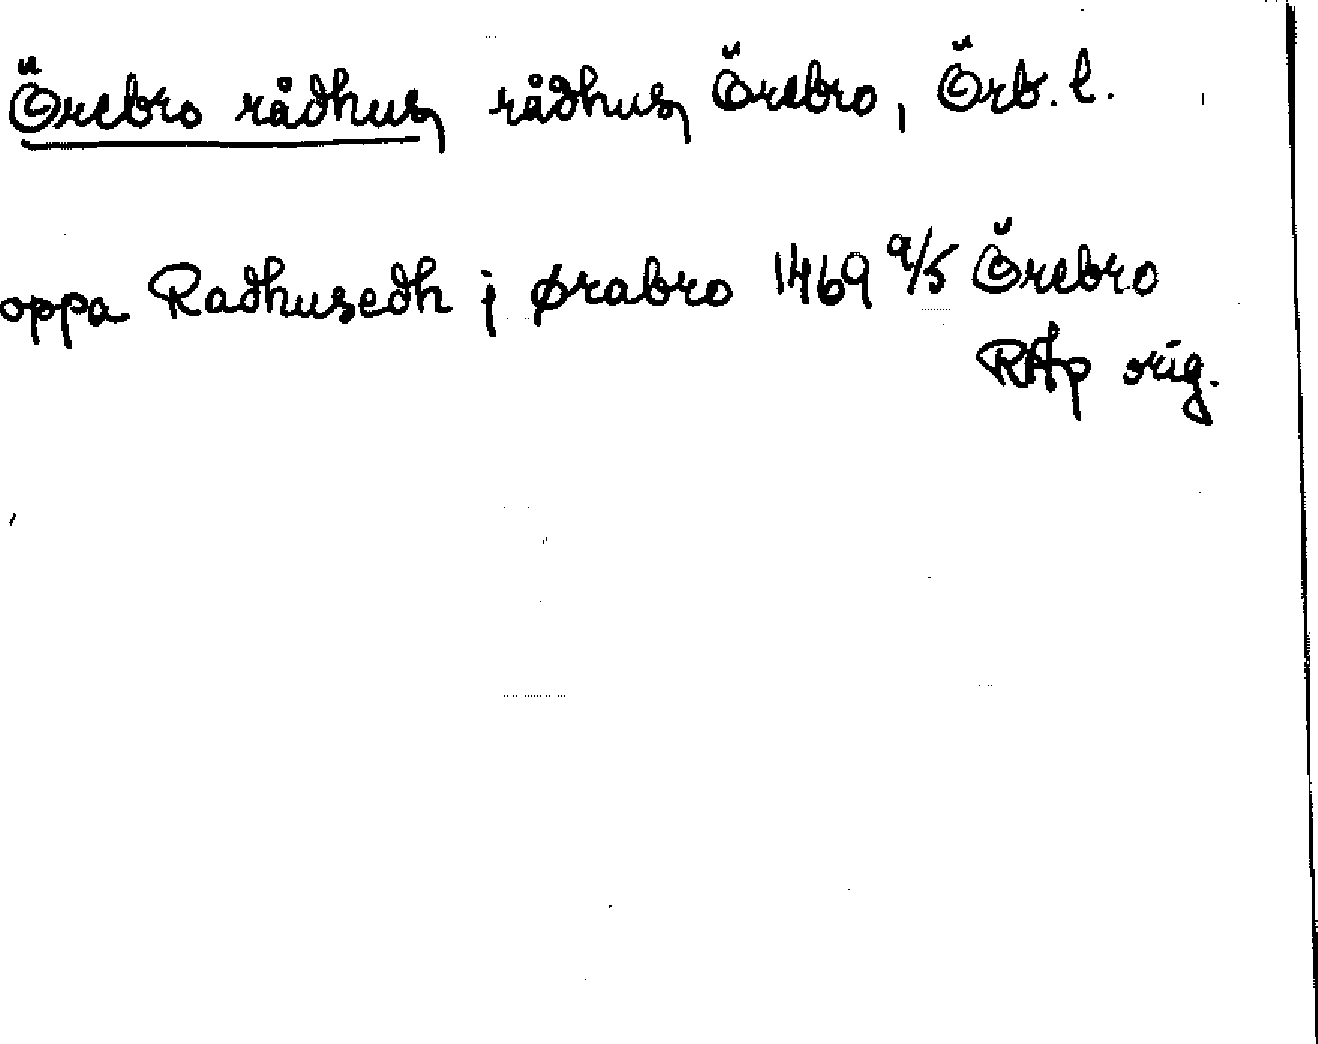 Örebro rådhus, rådhus, Örebro, Örb. l.
oppa Radhusedh j ørabro 1469 9/5 Örebro
RAp orig.